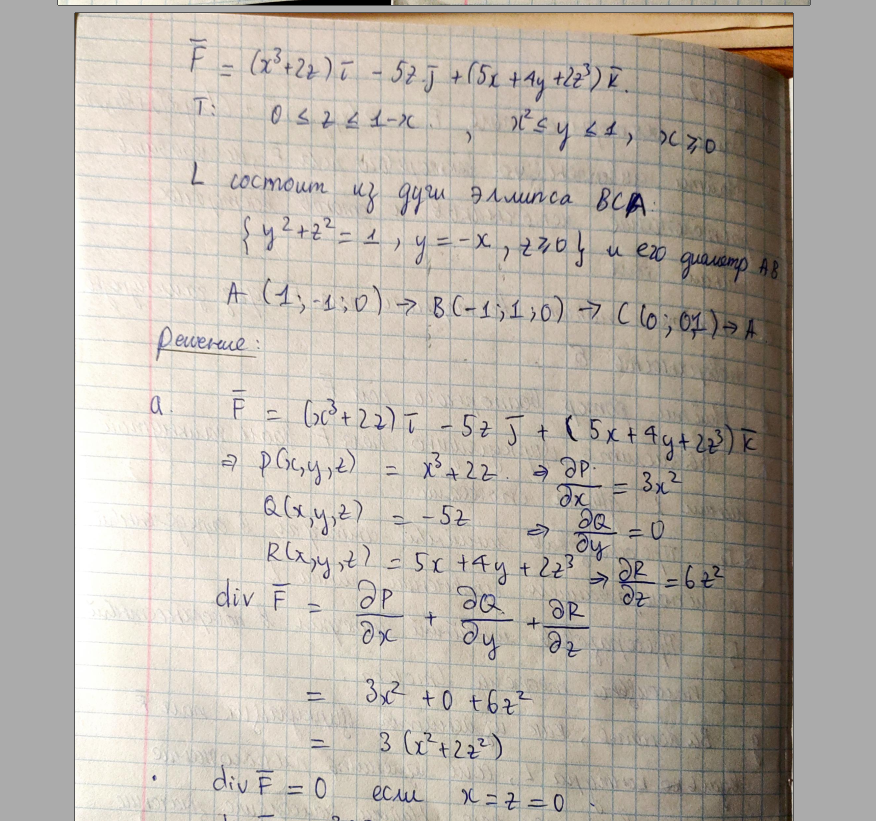 F̅ = (x³+2z) i̅ - 5z j̅ + (5x + 4y + 2z³) k̅.
T: 0 ≤ z ≤ 1-x , x² ≤ y ≤ 1, x ≥ 0
L состоит из дуги эллипса BCA:
{ y² + z² = 1 , y = -x , z ≥ 0 } и его диаметр AB
A (1; -1; 0) → B (-1; 1; 0) → C (0; 0; 1) → A
Решение:
a. F̅ = (x³+2z) i̅ - 5z j̅ + ( 5x + 4y + 2z³) k̅
⇒ P(x,y,z) = x³ + 2z. ⇒ ∂P/∂x = 3x²
Q(x,y,z) = -5z ⇒ ∂Q/∂y = 0
R(x,y,z) = 5x + 4y + 2z³ ⇒ ∂R/∂z = 6z²
div F̅ = ∂P/∂x + ∂Q/∂y + ∂R/∂z
= 3x² + 0 + 6z²
= 3 (x² + 2z²)
. div F̅ = 0 если x = z = 0 .